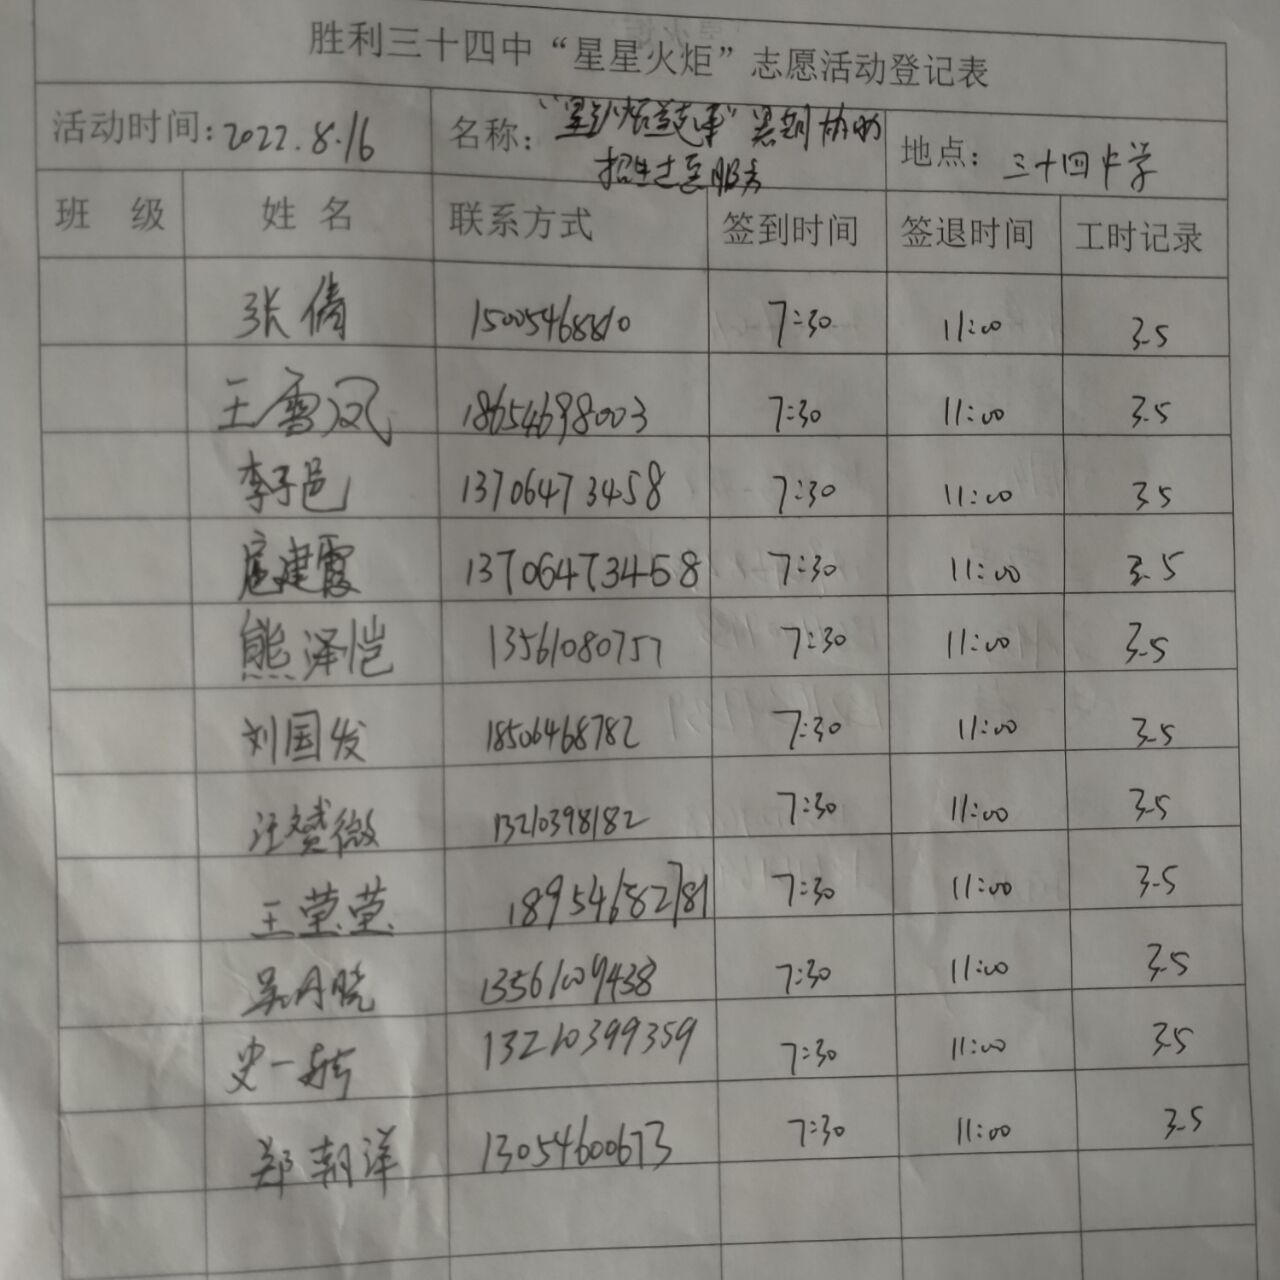 胜利三十四中“星星火炬”志愿活动登记表
活动时间：2022.8.16 名称：“星火炬志愿军”暑期协助 地点：三十四中学
招生过医服务
班 级 姓 名 联系方式 签到时间 签退时间 工时记录
张倩 15005468810 7:30 11:00 3.5
王雪凤 18654698003 7:30 11:00 3.5
李子邑 13706473458 7:30 11:00 3.5
扈建霞 13706473458 7:30 11:00 3.5
熊泽恺 13561080757 7:30 11:00 3.5
刘国发 18506468782 7:30 11:00 3.5
汪赟微 13210398182 7:30 11:00 3.5
王莹莹 18954682781 7:30 11:00 3.5
吴丹晓 13561009438 7:30 11:00 3.5
史一 13210399359 7:30 11:00 3.5
郑朝洋 13054600673 7:30 11:00 3.5